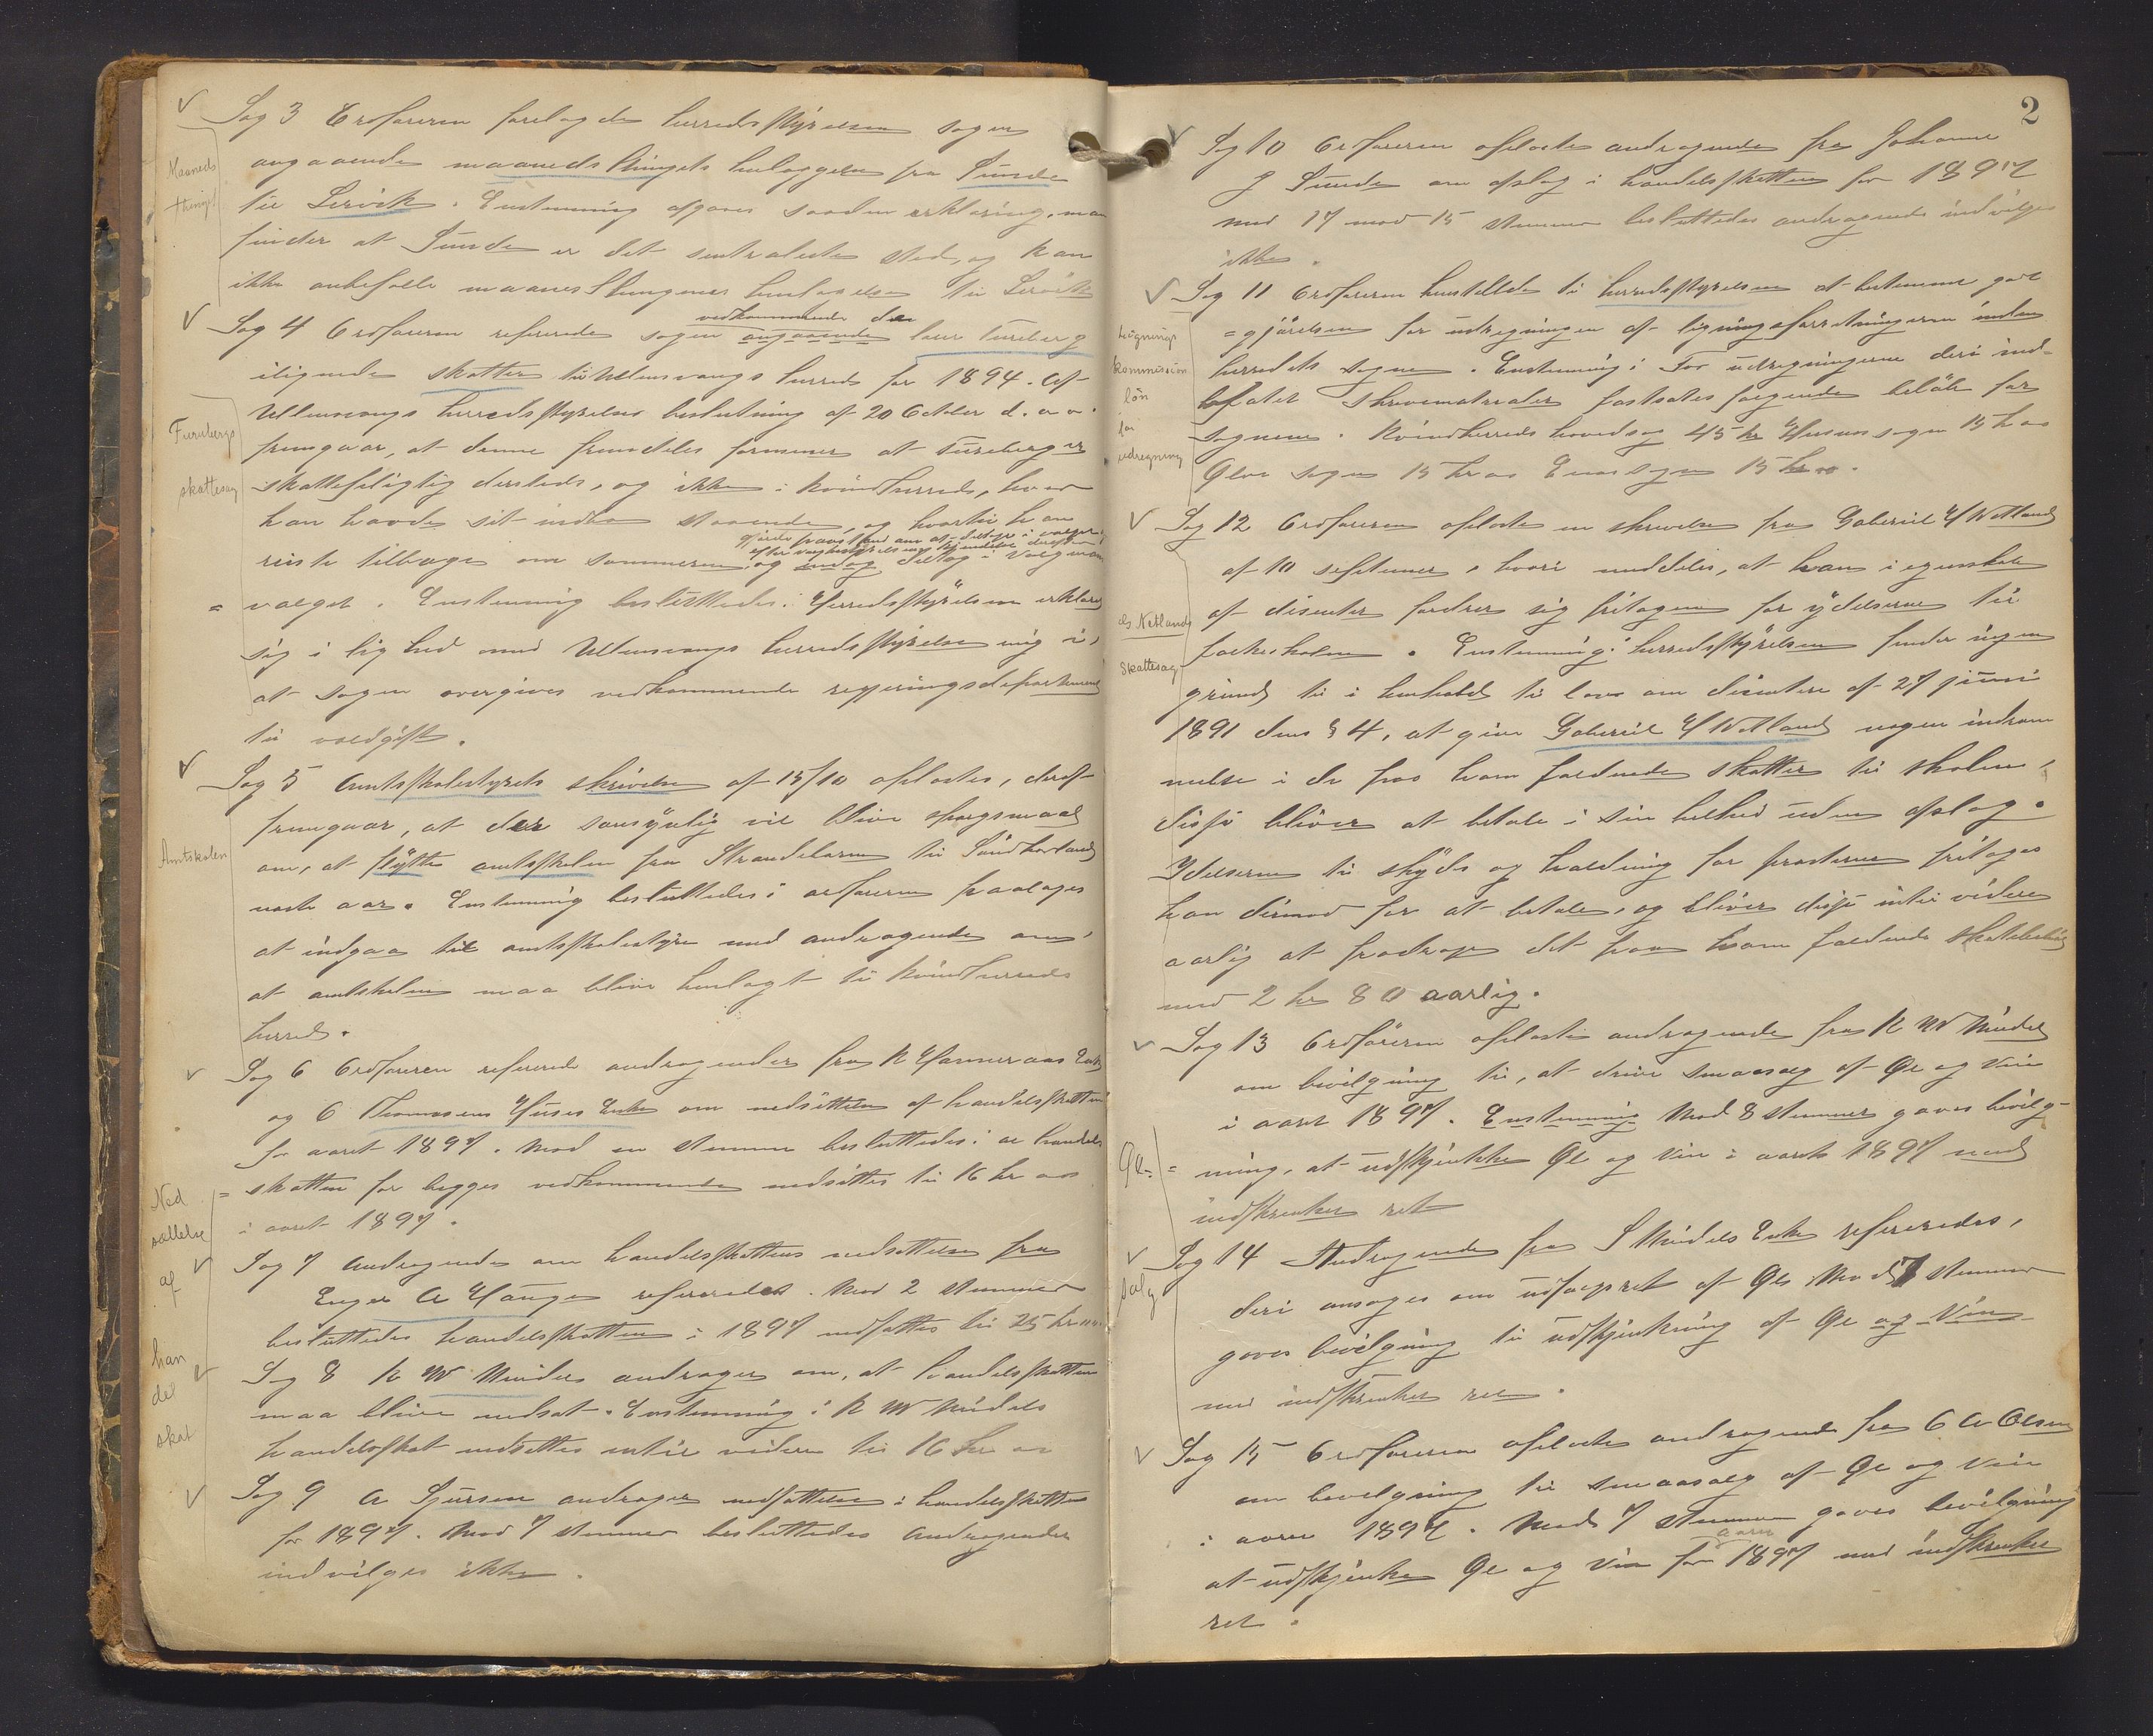 Sag 3 Ordføreren forelagde herredsstyrelsen sagen
angaaende maanedsthingets henlæggelse fra Sunde
til Lervik. Enstemmig afgaves saadan erklæring. man
finder at Sunde er det sentraleste sted, og kan
ikke anbefalle maanedsthingenes henlægelse til Lervik
Maaneds
thinget
Sag 4 Ordføreren refererede sagen angaaende
vedkommende den
ilignede skatter til Ullensvangs herred for 1894. Af
Ullensvangs herredsstyrelses beslutning af 20 October d. aa.
fremgaar, at denne fremdeles formener at Fureberg er
skattepligtig dersteds, og ikke i Kvindherred, hvor
han havde sit indbo staaende, og hvortil han
reiste tilbage om sommeren, og deltog i Valgmands
= valget. Enstemmig besluttedes: Herredsstyrelsen erklærer
sig i lighed med Ullensvangs herredsstyrelse enig i,
at sagen overgives vedkommende regjeringsdepartement
til voldgift.
Furebergs
skattesag
Sag 5 Amtsskolestyrets skrivelse af 15/10 oplæstes, deraf
fremgaar, at der sansynlig vil blive spørgsmaal
om, at flytte amtsskolen fra Strandebarm til Søndhordland
næste aar. Enstemmig besluttedes: ordføreren paalæges
at indgaa til amtsskolestyret med andragende om,
at amtskolen maa blive henlagt til Kvindherreds
herred.
Amtskolen
Sag 6 Ordføreren refererede andragender fra K Hammeraas Enke
og O Thomasens Huses Enke om nedsættelse af handelsskatten
for aaret 1897. Mod en stemme besluttedes: at handels
= skatten for begges vedkommende nedsættes til 16 kr
i aaret 1897.
Sag 7 Andragende om handelsskattens nedsættelse fra
A Hauge refereredes. Mod 2 stemmer
besluttedes handelsskatten i 1897 nedsattes til 25 kr
Sag 8 K W Mindes andrager om, at handelsskatten
maa blive nedsat. Enstemmig: K W Mindes
handelsskat nedsættes intil videre til 16 kr
Sag 9 A Sjursen andrager nedsættelse i handelsskatten
for 1897. Mod 7 stemmer besluttedes Andragendet
indvilges ikke.
Ned
sættelse
af
han
del
skat
2
Sag 10 Ordføreren oplæste andragende fra Johanne
J Sunde om afslag i handelsskatten for 1897
med 17 mod 15 stemmer besluttedes andragende indvilges
ikke.
Sag 11 Ordføreren henstillede til herredsstyrelsen at bestemme godt
= gjørelsen for udregningen af ligningsforretningerne inden
herredets sogne. Enstemmig: For udregningerne deri ind-
befatet skrivematrialer fastsættes følgende beløb for
sognene. Kvindherreds hovedsogn 45 kr Husnes sogn 15 kr
Ølve sogn 15 kr Enes sogn 15 kr.
Lignings
kommission
løn
for
udregning
Sag 12 Ordføreren oplæste en skrivelse fra Gabriel H Netland
af 10 september, hvori meddeles, at han i egenskab
af disenter fordrer sig fritagen for ydelserne til
folkeskolen. Enstemmig: herredsstyrelsen finder ingen
grund til i henhold til lov om disentere af 27 juni
1891 dens § 4, at give Gabriel H Netland nogen indrøm
melse i de paa ham faldende skatter til skolen,
disse bliver at betale i sin helhed uden afslag.
Ydelserne til skyds og holdning for presterne fritages
han derimod for at betale, og bliver disse intil videre
aarlig at fradrage det paa ham faldende skattebeløb
med 2 kr 80 aarlig.
Netlands
Skattesag
Sag 13 Ordføreren oplæste andragende fra K W Mindes
om bevilgning til, at drive smaasalg af Øl og Vin
i aaret 1897. Enstemmig Mod 8 stemmer gaves bevilg-
= ning, at udskjænke Øl og Vin i aaret 1897 med
indskrenket ret
Øl-
Sag 14 Andragende fra S Mindes Enke refereredes,
deri ansøges om udsalgsret af Øl. Mod 7 stemmer
gaves bevilgning til udskjænkning af Øl og Vin
med indskrænket ret.
salg
Sag 15 Ordføreren oplæste andragende fra O A Olsen
om bevilgning til smaasalg af Øl og Vin
i aaret 1897. Mod 7 stemmer gaves bevilgning
at udskjænke Øl og Vin for aaret 1897 med indskrenket
ret.